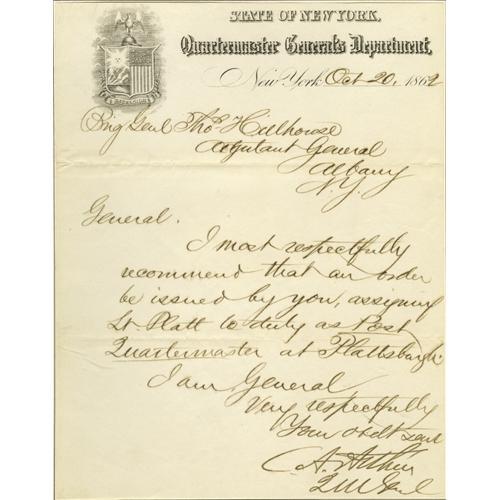 STATE OF NEW YORK,
Quartermaster General's Department,
New York Oct 20, 1862
Brig Genl Thos Hillhouse
Adjutant General
Albany
N.Y.
General.
I most respectfully
recommend that an order
be issued by you, assigning
Lt. Platt to duty as Post
Quartermaster at Plattsburgh.
I am General
Very respectfully
Your obdt Servt
C. A. Arthur
Q M Genl